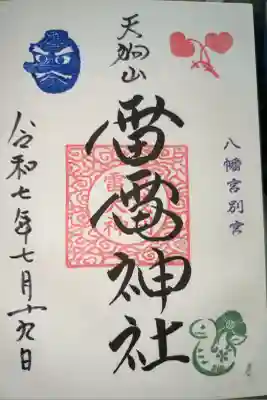 天狗山
雷電神社
八幡宮別宮
令和七年七月十九日